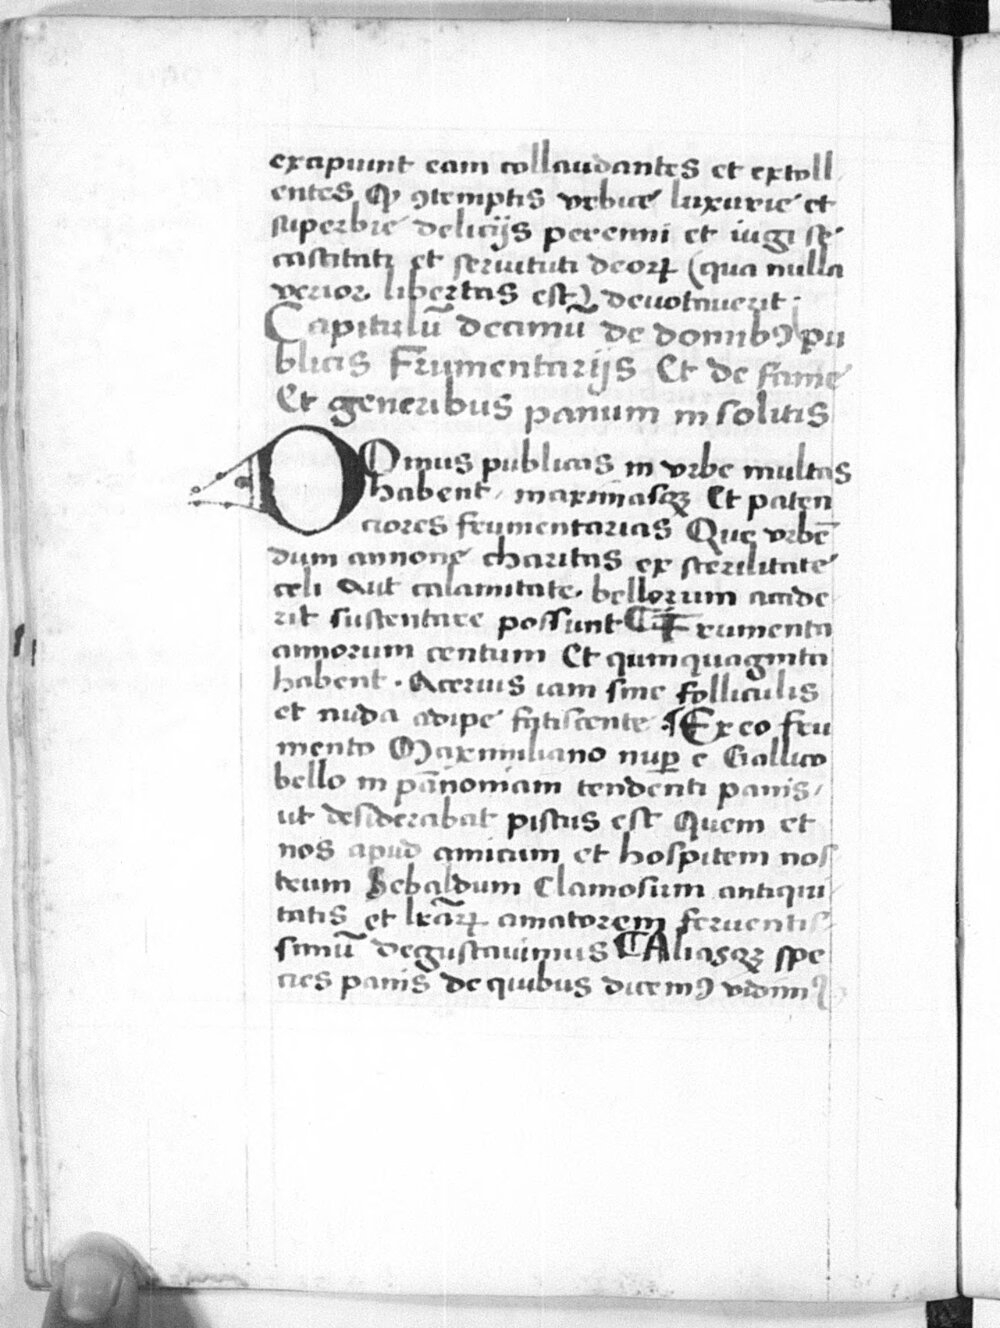 exapiunt eam collaudantes et extoll
entes Qꝙ ꝯtemptis vrbicę luxurię et
superbię delicijs perenni et iugi sę
castitati et seruituti deoꝝ (qua nulla
verior libertas est) deuotauerit.
Capitulū decimū de domibꝰ pu
blicis Frumentarijs Et de famę
Et generibus panum insolitis
DOmus publicas in vrbe multas
habent, maximasqꝫ Et paten
ciores frumentarias Quę vrbē
dum annonę charitas ex sterilitatę
celi Aut calamitate bellorum accide
rit sustentare possunt ¶Frumenta
annorum centum Et quinquaginta
habent. Aceruis iam sine folliculis
et nuda adipę fatiscente. ¶Ex eo fru
mento Maximiliano nuꝑ e Gallico
bello in pānoniam tendenti panis,
ut desiderabat pistus est Quem et
nos apud amicum et hospitem nos
trum Sebaldum Clamosum antiqui
tatis et lrāꝝ amatorem feruentis
simū degustauimus ¶Aliasqꝫ spe
cies panis de quibus dicemꝰ vidimꝰ